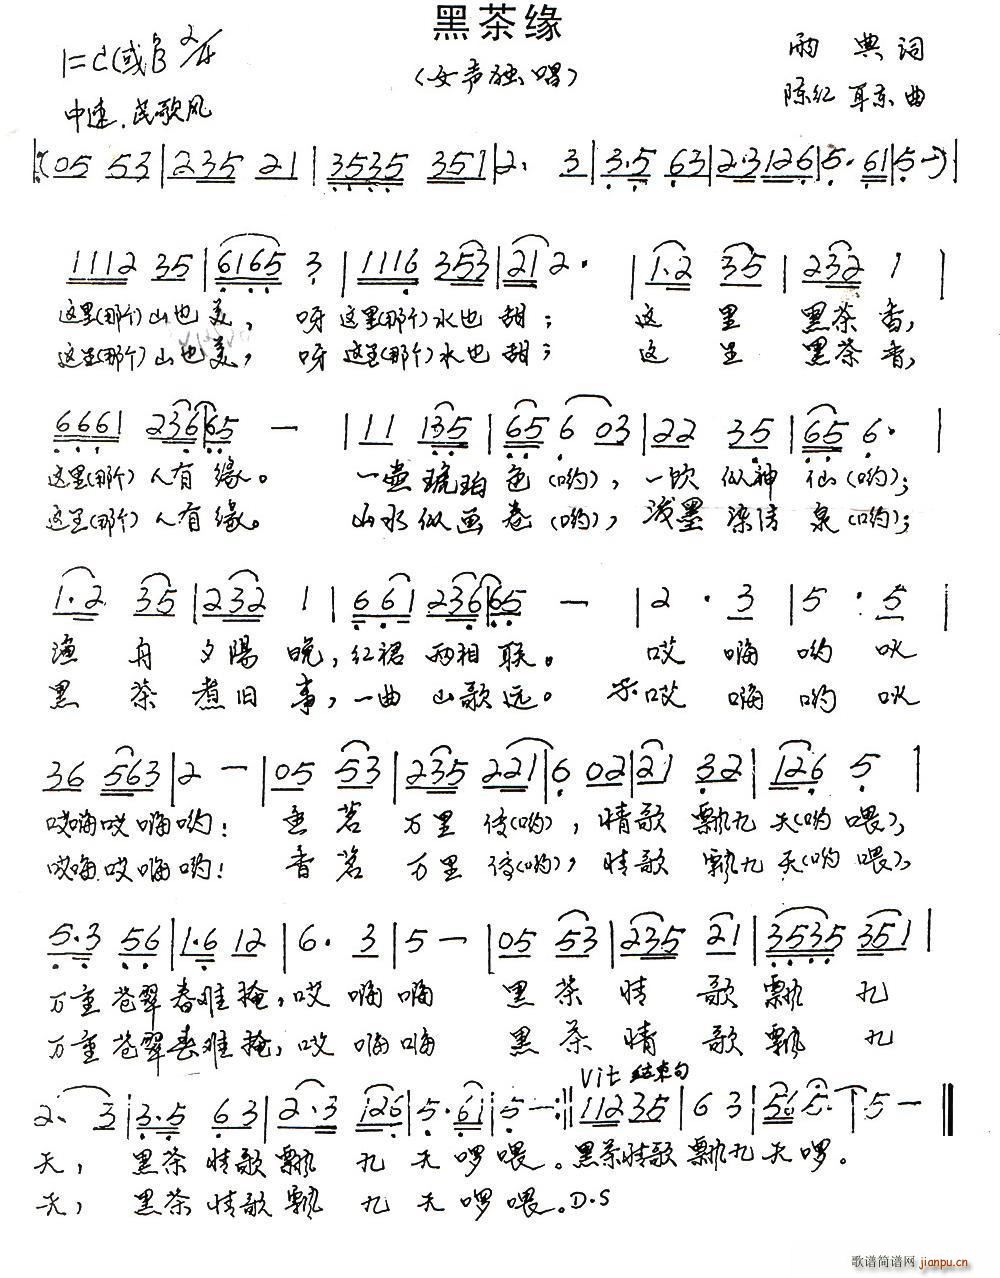 黑茶缘
1=C(或♭B 2/4
(女声独唱)
雨典词
中速.民歌风
陈红 耳东曲
(05 53|235 21|3535 351|2. 3|3.5 63|2.3 126|5.61|5-)|
1112 35|6165 3|1116 353|21 2.|1.2 35|232 1|
这里(那个)山也美,呀这里(那个)水也甜;这里黑茶香,
这里(那个)山也美,呀这里(那个)水也甜;这里黑茶香,
6661 236|65 -|11 135|65 6 03|22 35|65 6.|
这里(那个)人有缘。一壶琥珀色(哟),一饮似神仙(哟);
这里(那个)人有缘。山水似画卷(哟),浅墨染清泉(哟);
1.2 35|232 1|661 236|65 -|2.3|5.5|
渔舟夕陽晚,红裙两相联。哎嗨哟
黑茶煮旧事,一曲山歌远。哎嗨哟
36 563|2-|05 53|235 221|6 02|21 32|126 5|
哎嗨哎嗨哟!香茗万里传(哟),情歌飘九天(哟喂),
哎嗨哎嗨哟!香茗万里传(哟),情歌飘九天(哟喂),
5.3 56|1.6 12|6.3|5-|05 53|235 21|3535 351|
万重苍翠春难掩,哎嗨嗨 黑茶情歌飘九
万重苍翠春难掩,哎嗨嗨 黑茶情歌飘九
Vit 结束句
2. 3|3.5 63|2.3 126|5.61|5-:‖1123 5|63|56 5.|5-‖
天,黑茶情歌飘九天啰喂。黑茶情歌飘九天啰。
天,黑茶情歌飘九天啰喂。D.S
歌谱简谱网 jianpu.cn